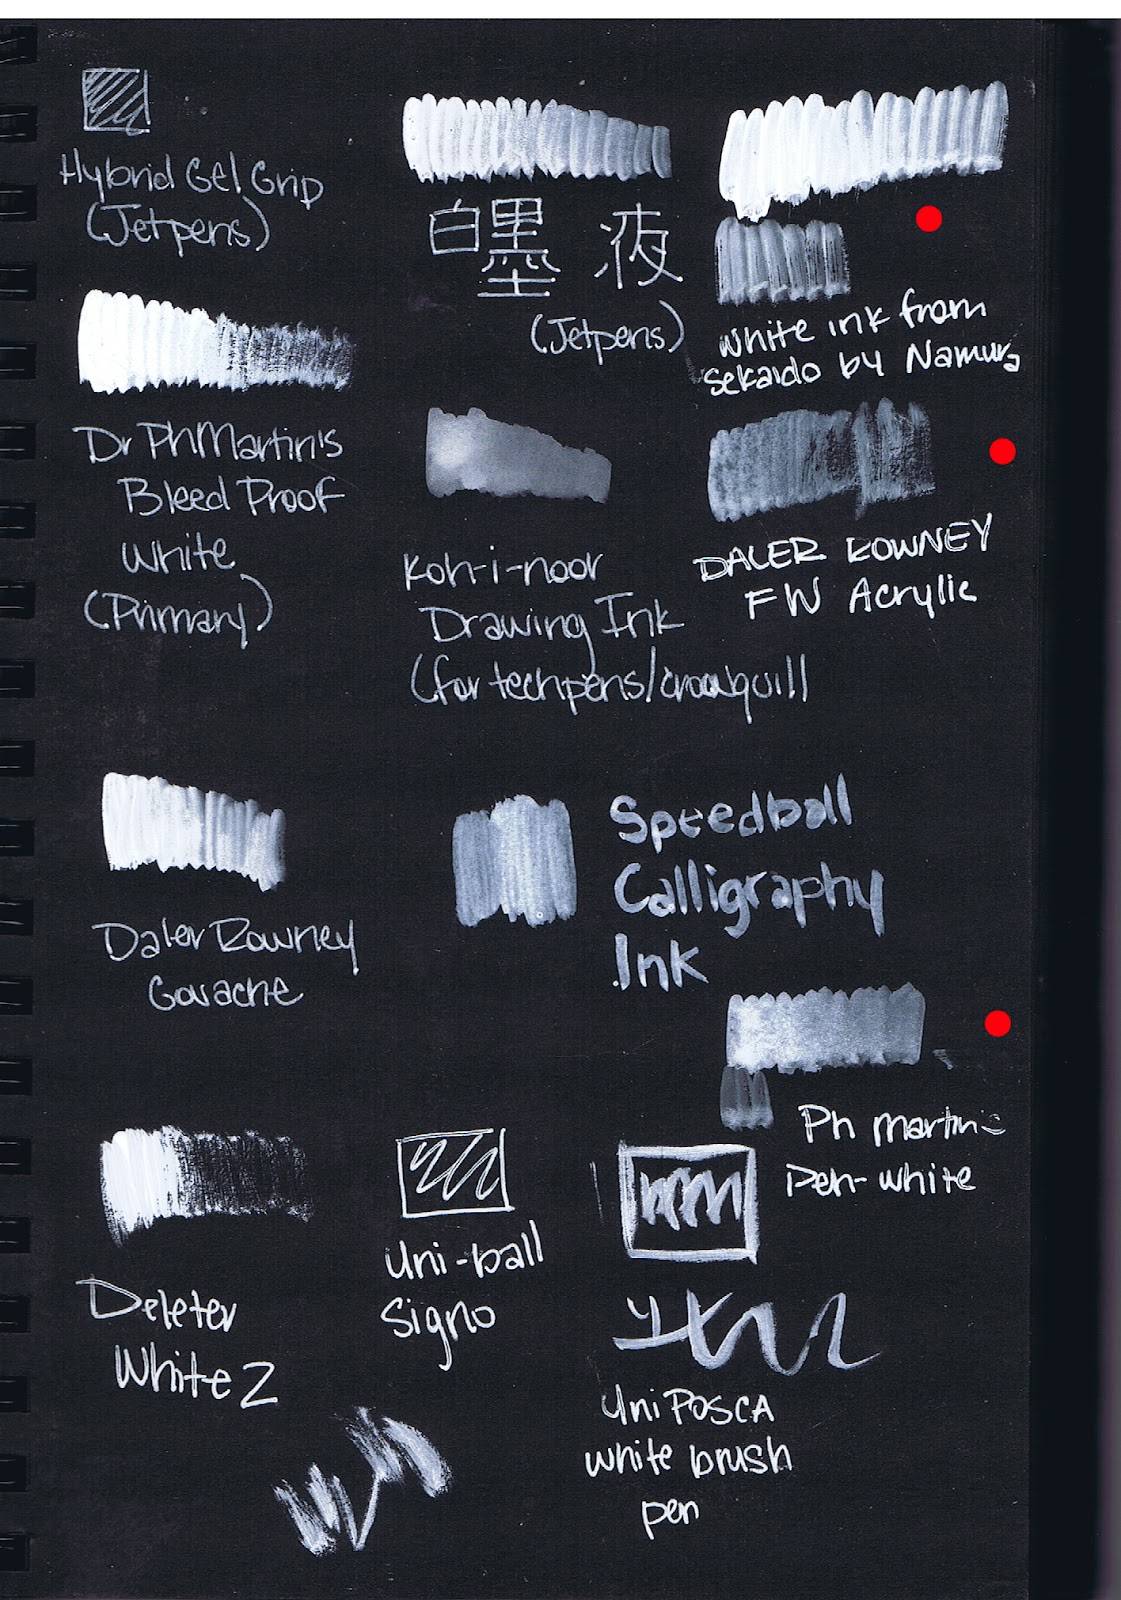 Hybrid Gel Grip
(Jetpens)
白墨液
(Jetpens)
white ink from
Sekaido by Namura
Dr PhMartin's
Bleed Proof
White
(Primary)
Koh-i-noor
Drawing Ink
(for techpens/crowquill
DALER ROWNEY
FW Acrylic
Daler Rowney
Gouache
Speedball
Calligraphy
Ink
Ph martin's
Pen-white
Deleter
White 2
Uni-ball
Signo
Uni POSCA
white brush
pen